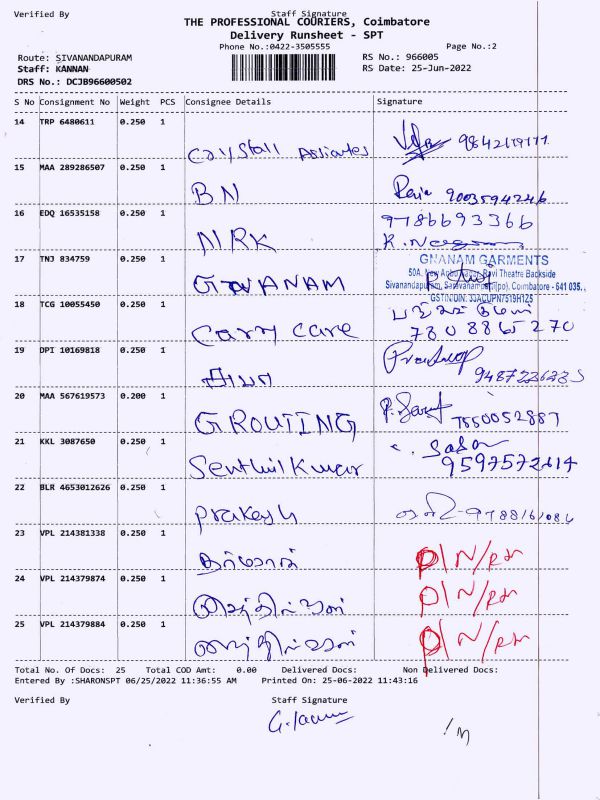 Verified By Staff Signature
THE PROFESSIONAL COURIERS, Coimbatore
Delivery Runsheet - SPT
Phone No.:0422-3505555 Page No.:2
Route: SIVANANDAPURAM RS No.: 966005
Staff: KANNAN RS Date: 25-Jun-2022
DRS No.: DCJB96600502
S No Consignment No Weight PCS Consignee Details Signature
14 TRP 6480611 0.250 1
Coryshall Assiciates 9842119177
15 MAA 289286507 0.250 1
BN 9003594246
16 EDQ 16535158 0.250 1 9786693366
MRK
17 TNJ 834759 0.250 1 GNANAM GARMENTS
50A, New Anbu Nagar, Ravi Theatre Backside
GNANAM Sivanandapuram, Saravanampatti(po), Coimbatore - 641 035.
18 TCG 10055450 0.250 1 GSTIN/UIN: 33ACUPN7519H1Z5
Carry care 7808865270
19 DPI 10169818 0.250 1
அபி
20 MAA 567619573 0.200 1
GROUTING 7550052887
21 KKL 3087650 0.250 1
Senthil Kumar 9597572614
22 BLR 4653012626 0.250 1
Prakash
23 VPL 214381338 0.250 1
D/N/RM
24 VPL 214379874 0.250 1
D/N/RM
25 VPL 214379884 0.250 1
D/N/RM
Total No. Of Docs: 25 Total COD Amt: 0.00 Delivered Docs: Non Delivered Docs:
Entered By :SHARONSPT 06/25/2022 11:36:55 AM Printed On: 25-06-2022 11:43:16
Verified By Staff Signature